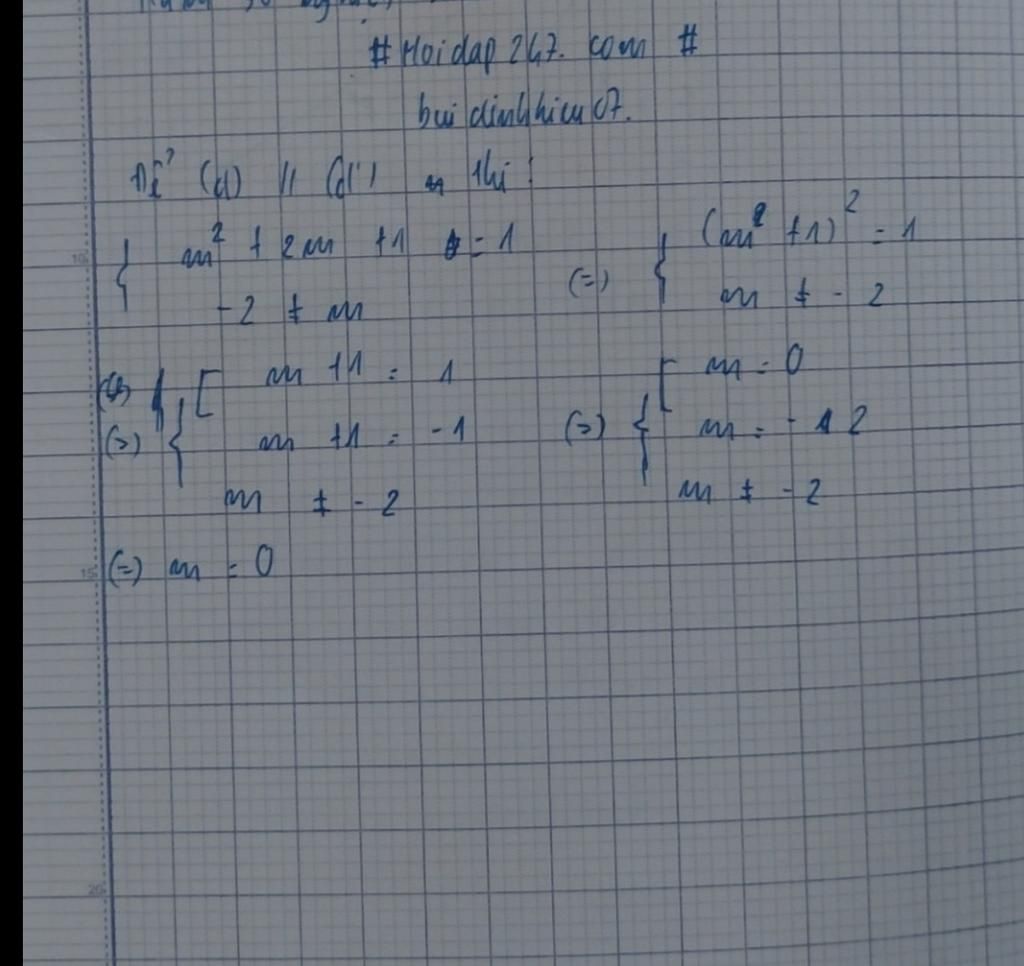 # Hoidap247. com #
buidinhhieu07.
Để (d) // (d') thì :
{ m² + 2m + 1 = 1
-2 ≠ m
(=) { (m² + 1)² = 1
m ≠ - 2
(=) { [ m + 1 = 1
m + 1 = - 1
m ≠ - 2
(=) { [ m = 0
m = - 2
m ≠ - 2
(=) m = 0